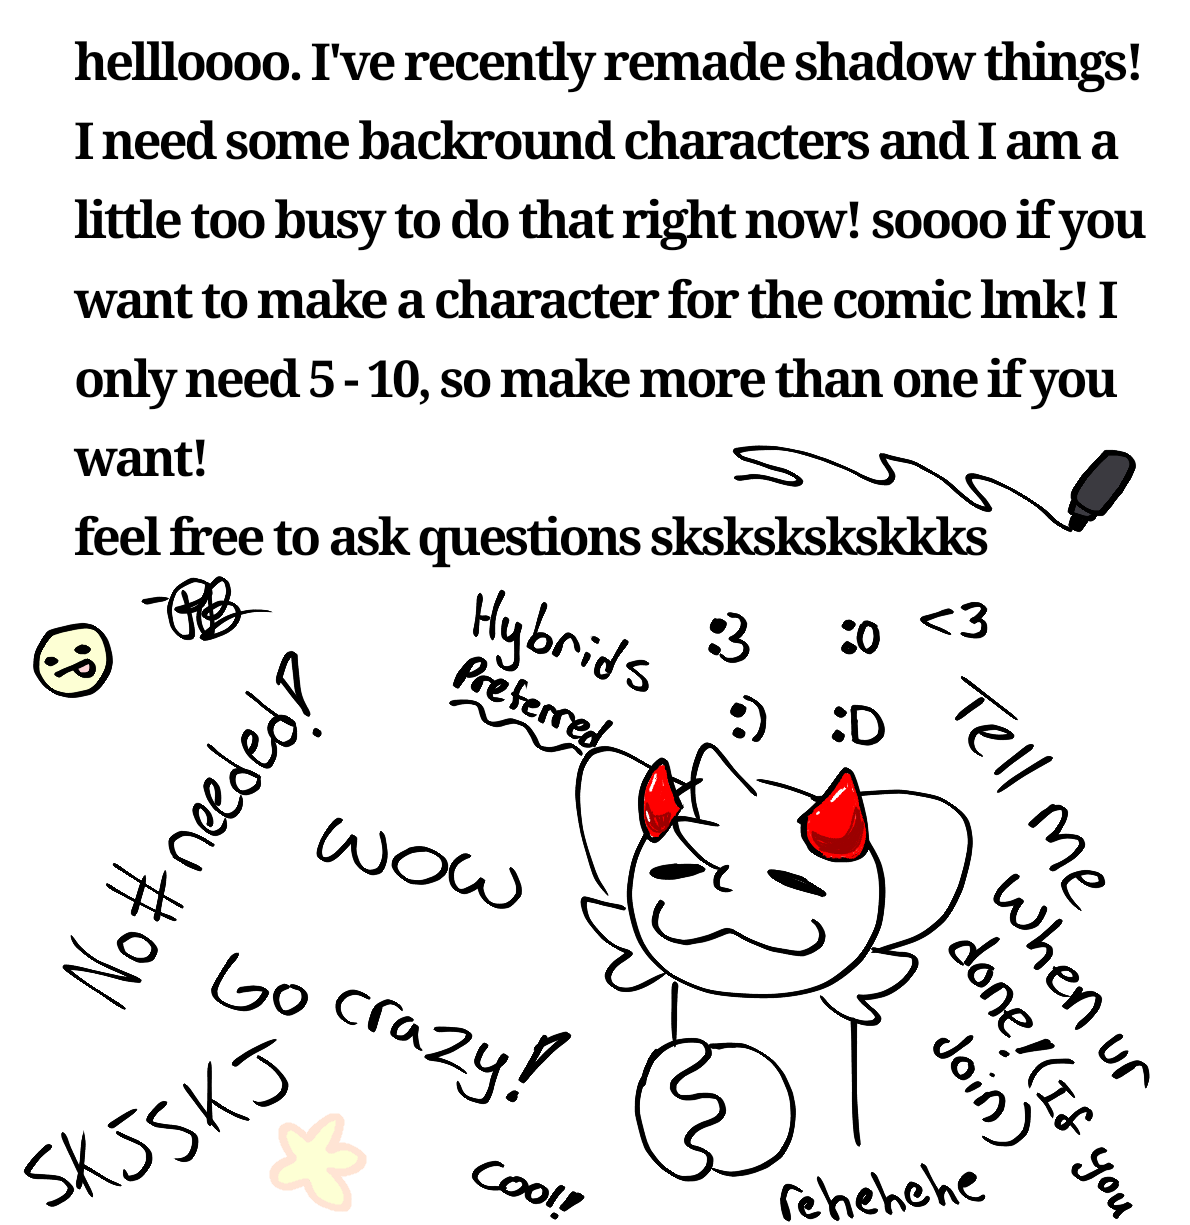 hellloooo. I've recently remade shadow things!
I need some backround characters and I am a
little too busy to do that right now! soooo if you
want to make a character for the comic lmk! I
only need 5 - 10, so make more than one if you
want!
feel free to ask questions skskskskskkks
Hybrids
Preferred
:3
:0
<3
:)
:D
No # needed!
wow
Go crazy!
SKJSKJ
Cool!!
rehehehe
Tell me
when ur
done! (If you
join)